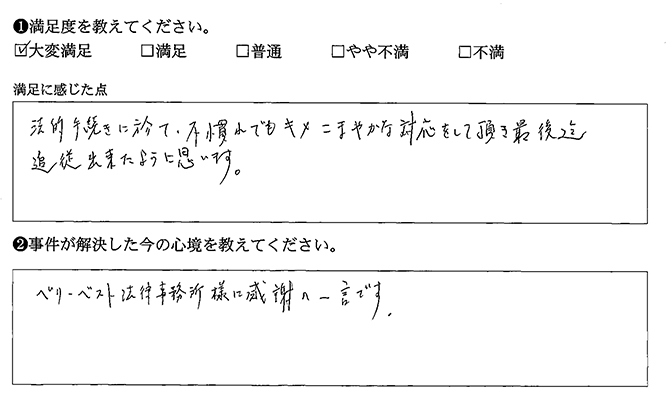 ❶満足度を教えてください。
☑大変満足 □満足 □普通 □やや不満 □不満
満足に感じた点
法的手続きに於て、不慣れでもキメこまやかな対応をして頂き最後迄
追従出来たように思います。
❷事件が解決した今の心境を教えてください。
ベリーベスト法律事務所様に感謝の一言です.